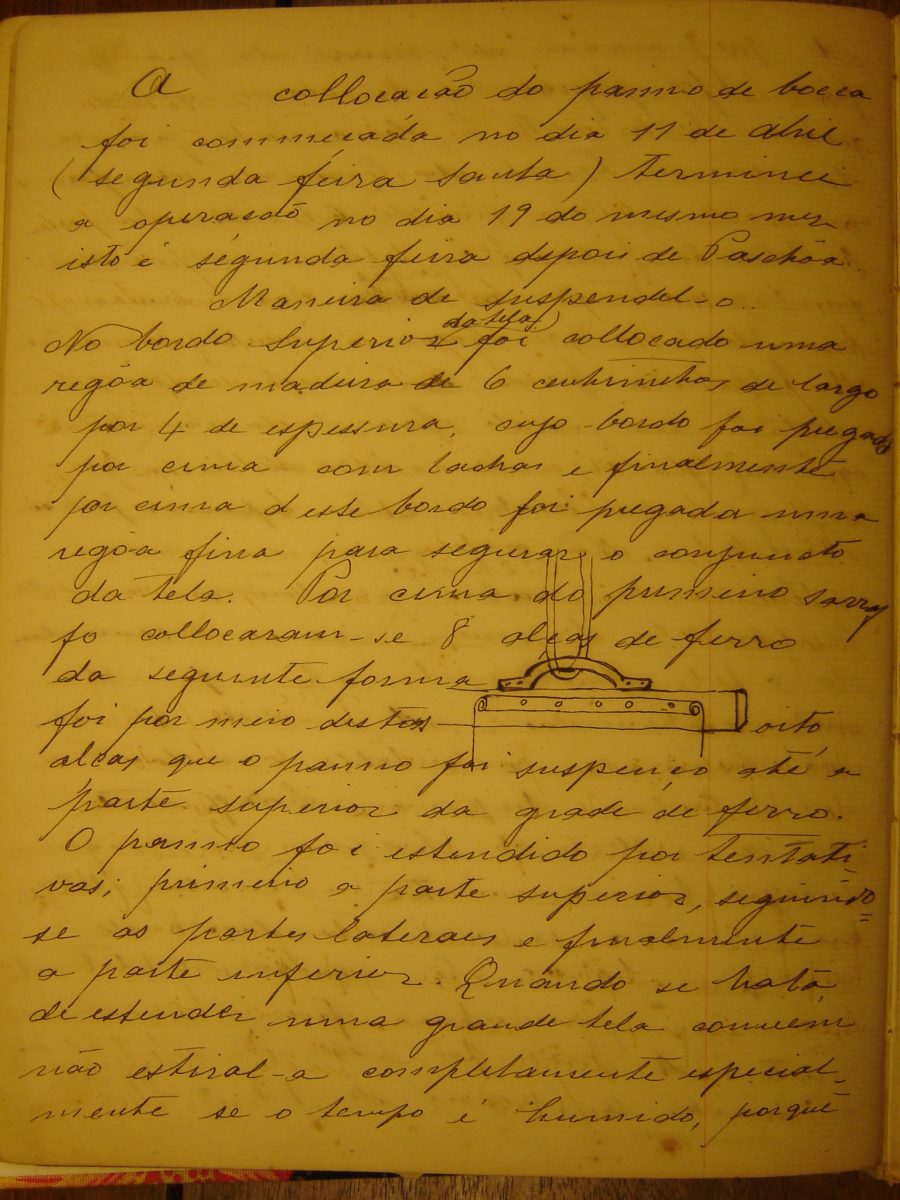 A collocação do panno de bocca
foi commeçada no dia 11 de Abril
(segunda feira Santa) Terminei
a operacão no dia 19 do mesmo mez
isto é segunda feira depois de Paschôa.
Maneira de suspendel-o.
No bordo Superior (da tela) foi collocado uma
regôa de madeira de 6 centimetros de largo
por 4 de espessura, cujo bordo foi pregado
por cima com tachas e finalmente
por cima d este bordo foi pregada uma
regôa fina para segurar o conjuncto
da tela. Por cima do primeiro sarra
fo collocaram-se 8 alças de ferro
da seguinte forma
foi por meio destas oito
alças que o panno foi suspenço até a
parte superior da grade de ferro.
O panno foi estendido por tentati-
vas; primeiro a parte superior, seguindo=
se as partes lateraes e finalmente
a parte inferior. Quando se trata
de estender uma grande tela convem
não estiral-a completamente especial-
mente se o tempo é humido, porque